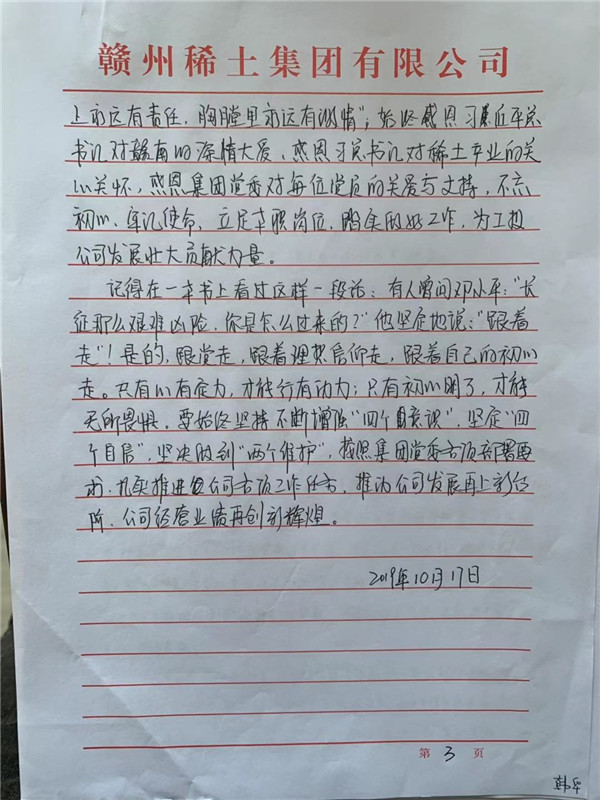 赣州稀土集团有限公司
上永远有责任，胸膛里永远有激情"；始终感恩习近平总
书记对赣南的深情大爱、感恩习总书记对稀土产业的关
心关怀，感恩集团党委对每位党员的关爱与支持，不忘
初心、牢记使命，立足本职岗位，踏实做好工作，为工投
公司发展壮大贡献力量。
记得在一本书上看过这样一段话：有人曾问邓小平："长
征那么艰难凶险，你是怎么过来的？"他坚定地说："跟着
走"！是的，跟党走，跟着理想信仰走，跟着自己的初心
走。只有心有定力，才能行有动力；只有初心明了，才能
无所畏惧。要始终坚持不断增强"四个意识"，坚定"四
个自信"，坚决做到"两个维护"，按照集团党委各项部署要
求，扎实推进公司各项工作任务，推动公司发展再上新台
阶、公司经营业绩再创新辉煌。
2019年10月17日
第 3 页